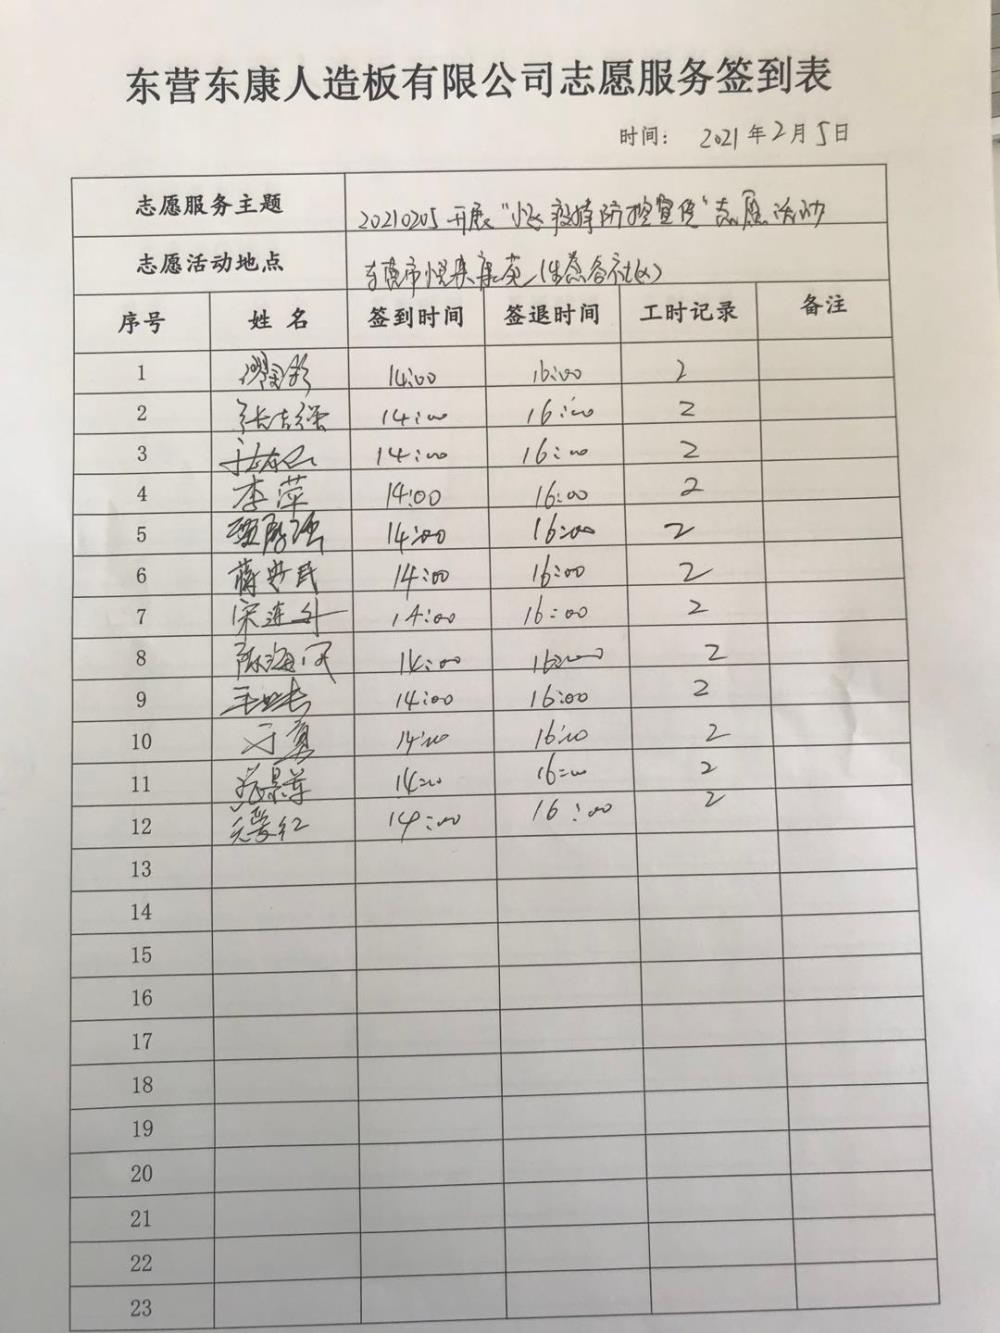 东营东康人造板有限公司志愿服务签到表
时间： 2021年2月5日
志愿服务主题 20210205开展“ 疫情防控宣传”志愿活动
志愿活动地点 东营市悦来 (生态谷社区)
序号 姓 名 签到时间 签退时间 工时记录 备注
1 14:00 16:00 2
2 张吉强 14:00 16:00 2
3 14:00 16:00 2
4 李萍 14:00 16:00 2
5 14:00 16:00 2
6 14:00 16:00 2
7 宋连 14:00 16:00 2
8 陈海 14:00 16:00 2
9 14:00 16:00 2
10 14:00 16:00 2
11 14:00 16:00 2
12 14:00 16:00 2
13
14
15
16
17
18
19
20
21
22
23